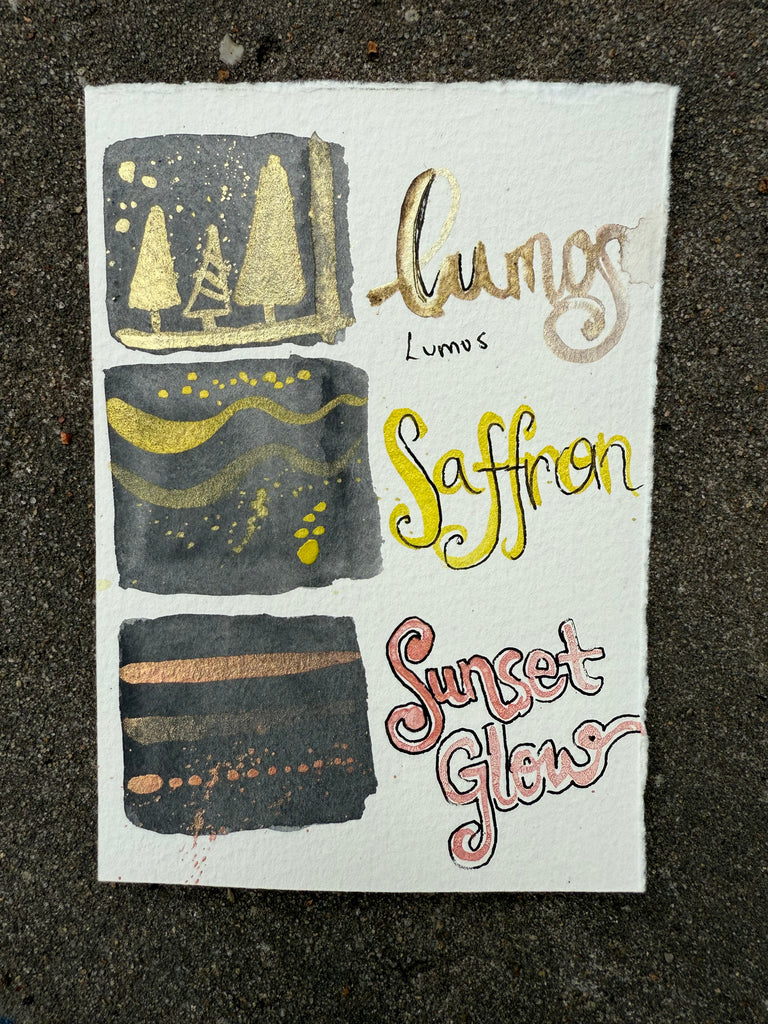 lumos
Lumos
Saffron
Sunset
Glow